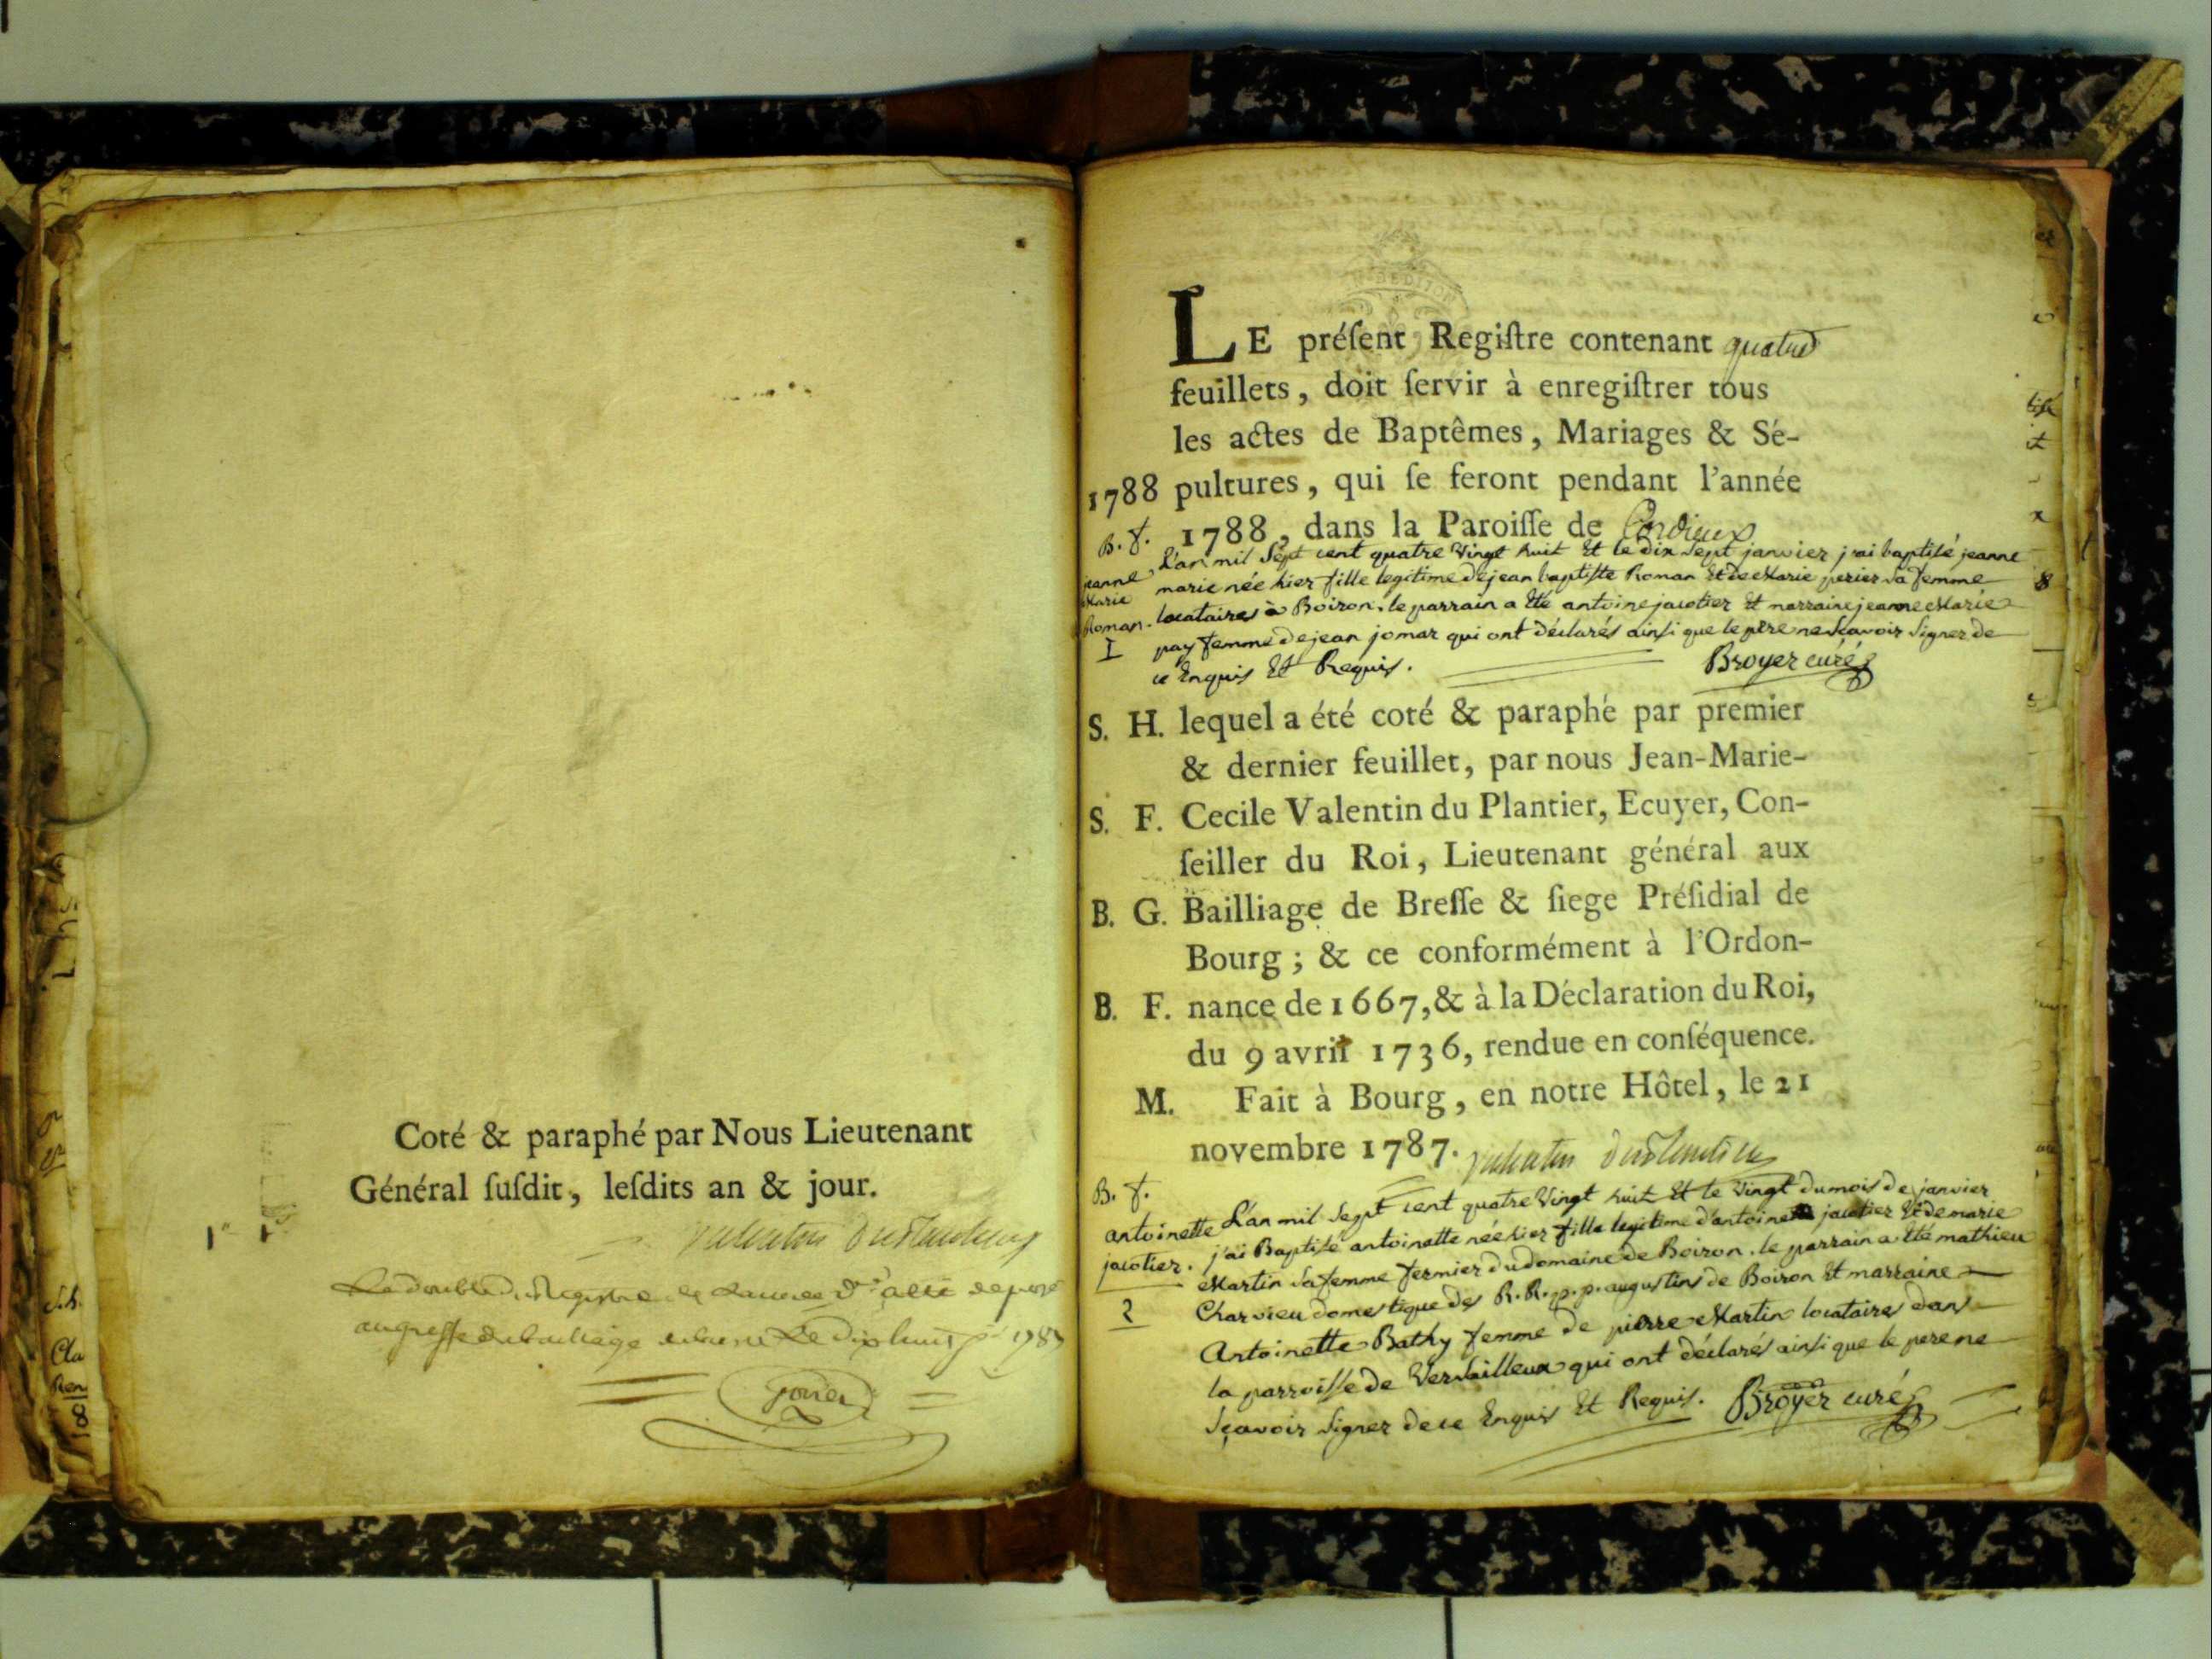 Coté & paraphé par Nous Lieutenant
Général suſdit, leſdits an & jour.
valentin duplantier
Le double du Registre de l'année d. a été deposé
au greffe du bailliage de bresse Le dix huit 178
LE préſent Regiſtre contenant quatre
feuillets, doit ſervir à enregiſtrer tous
les actes de Baptêmes, Mariages & Sé-
1788 pultures, qui ſe feront pendant l'année
1788, dans la Paroiſſe de Cordieux
B. f.
jeanne
Marie
Roman.
I
L'an mil Sept cent quatre Vingt huit Et le dix Sept janvier j'ai baptisé jeanne
marie née hier fille legitime de jean baptiste Roman Et de Marie perier sa femme
locataires à Boiron. le parrain a Eté antoine jacotier Et marraine jeanne Marie
pay femme de jean jomar qui ont déclarés ainsi que le père ne Sçavoir Signer de
ce Enquis Et Requis. Broyer curé
S. H. lequel a été coté & paraphé par premier
& dernier feuillet, par nous Jean-Marie-
S. F. Cecile Valentin du Plantier, Ecuyer, Con-
ſeiller du Roi, Lieutenant général aux
B. G. Bailliage de Breſſe & ſiege Préſidial de
Bourg; & ce conformément à l'Ordon-
B. F. nance de 1667, & à la Déclaration du Roi,
du 9 avril 1736, rendue en conſéquence.
M. Fait à Bourg, en notre Hôtel, le 21
novembre 1787. valentin duplantier
B. f.
antoinette
jacotier.
2
L'an mil Sept cent quatre Vingt huit Et le Vingt du mois de janvier
j'ai Baptisé antoinette née hier fille legitime d'antoine jacotier Et de marie
Martin Sa femme fermier du domaine de Boiron. le parrain a Eté mathieu
Charvieu domestique des R. R. p. p. augustins de Boiron Et marraine
Antoinette Bathy femme de pierre Martin locataires dans
la parroisse de Versailleux qui ont déclarés ainsi que le pere ne
Sçavoir Signer de ce Enquis Et Requis. Broyer curé